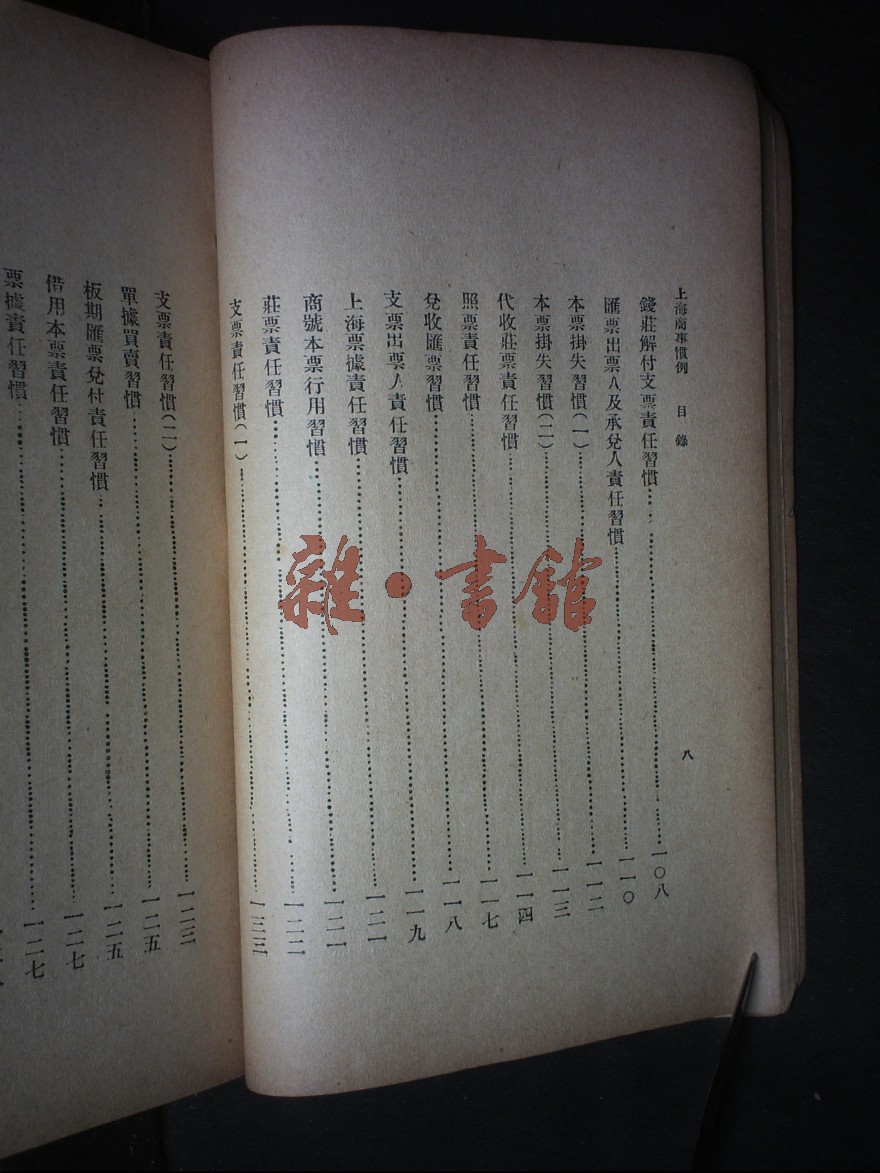 上海商事慣例 目錄 八
錢莊解付支票責任習慣……一〇八
匯票出票人及承兌人責任習慣……一一〇
本票掛失習慣(一)……一一二
本票掛失習慣(二)……一一三
代收莊票責任習慣……一一四
照票責任習慣……一一七
兌收匯票習慣……一一八
支票出票人責任習慣……一一九
上海票據責任習慣……一二一
商號本票行用習慣……一二一
莊票責任習慣……一二二
支票責任習慣(一)……一二三
支票責任習慣(二)……一二三
單據買賣習慣……一二五
板期匯票兌付責任習慣……一二五
借用本票責任習慣……一二七
票據責任習慣……一二七
雜·書館